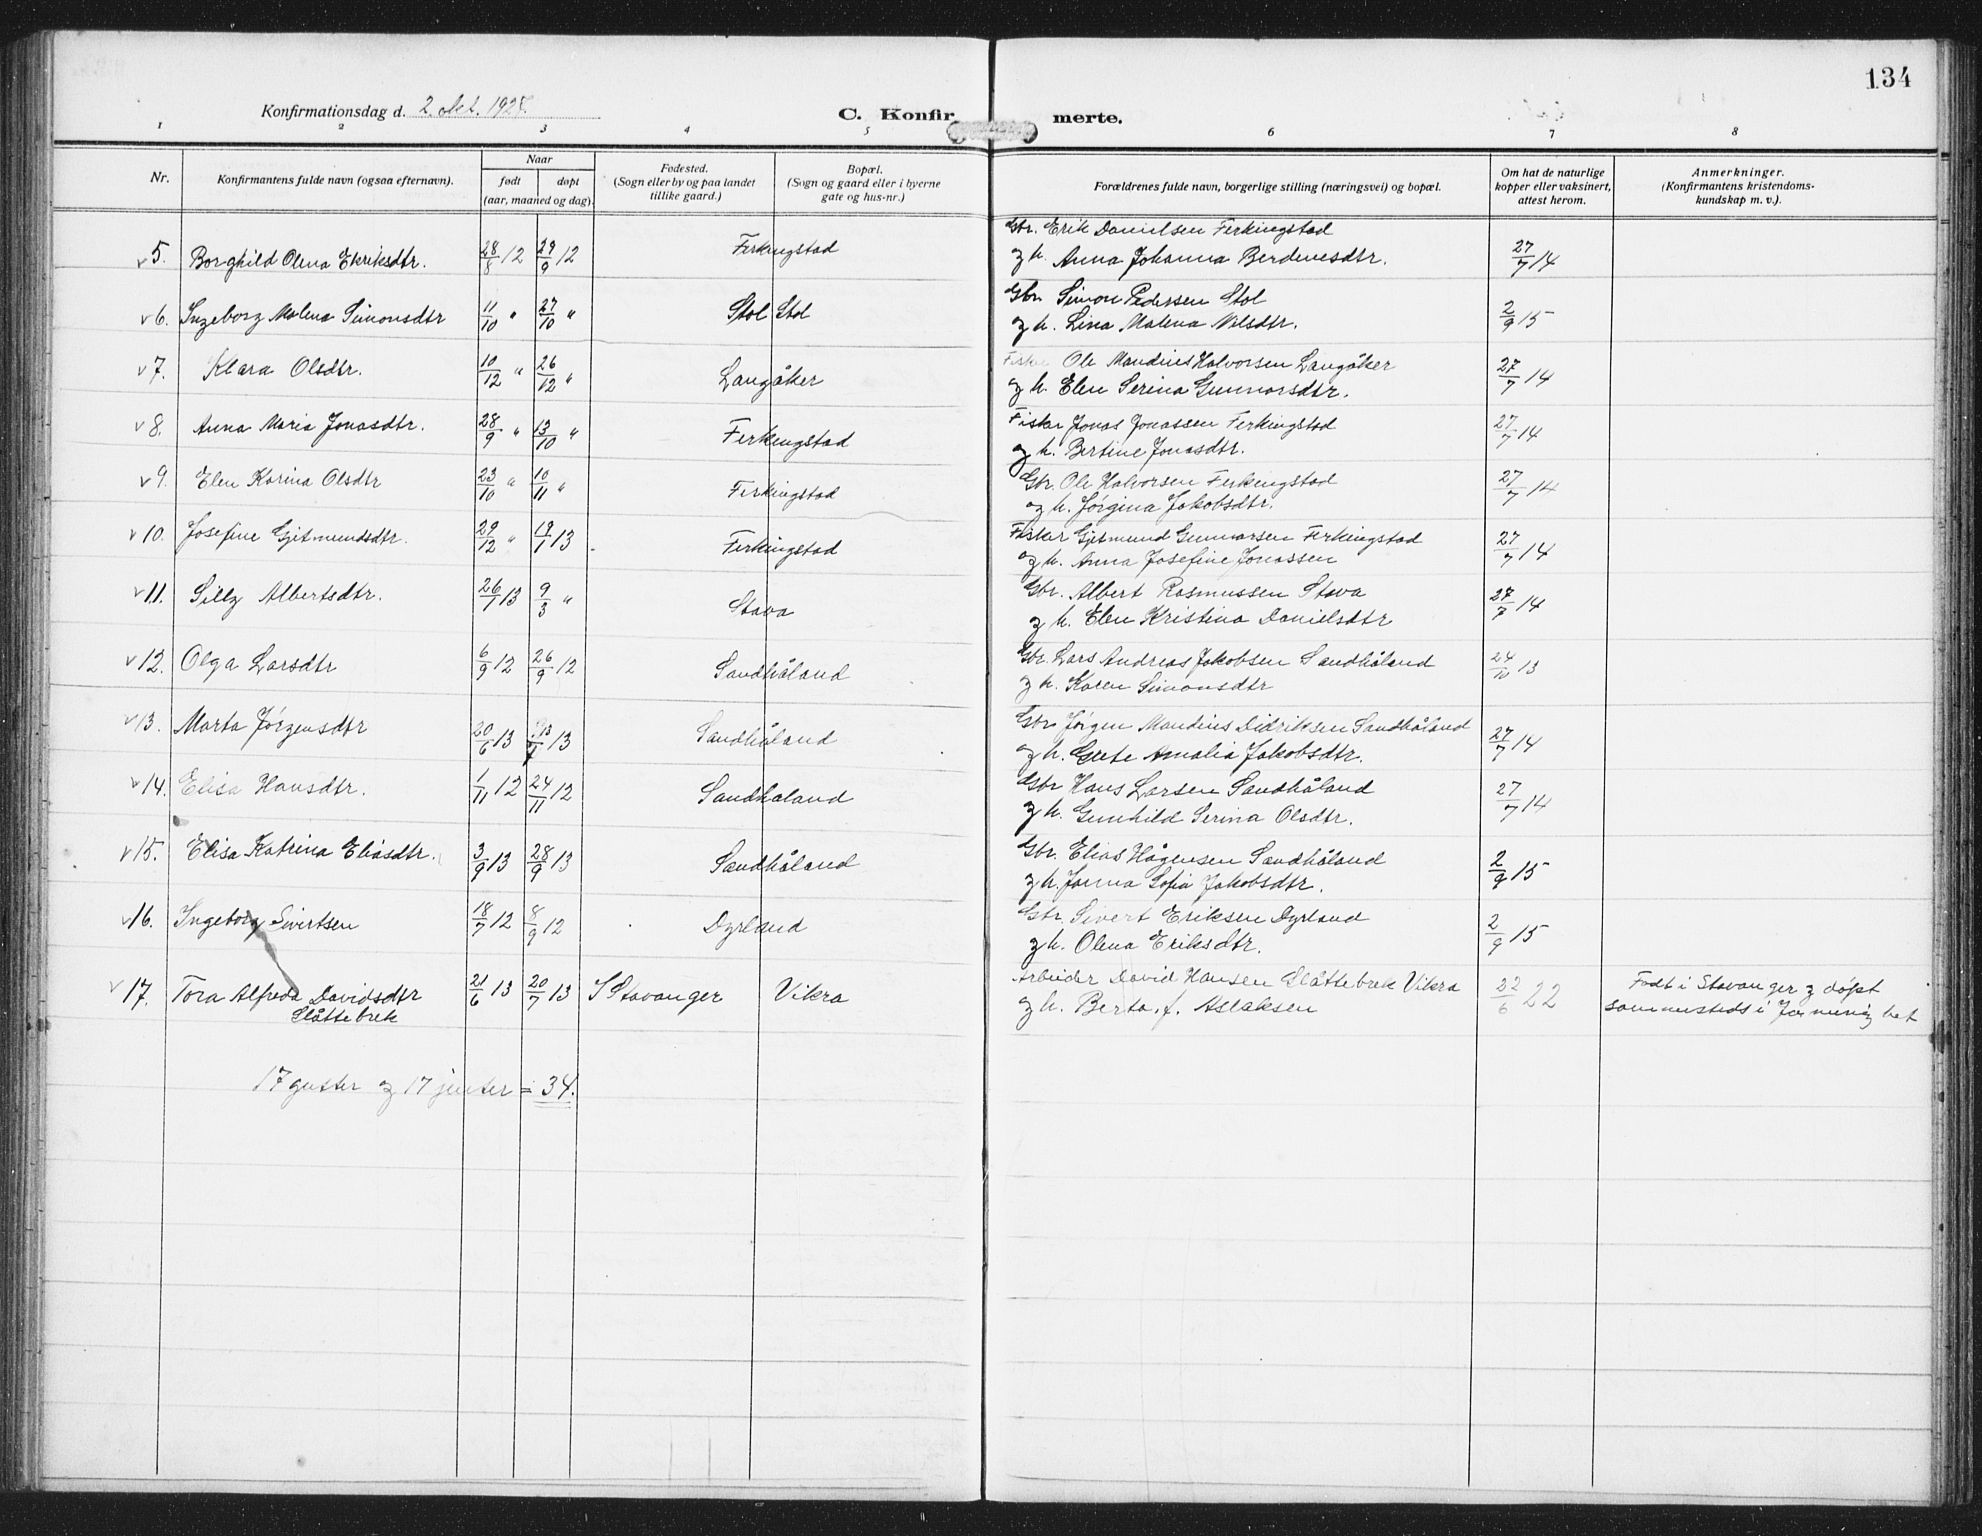 134
Konfirmationsdag d. 2 okt. 192
C. Konfirmerte.
1 2 3 4 5 6 7 8
Nr.
Konfirmantens fulde navn (ogsaa efternavn).
Naar
født døpt
(aar, maaned og dag).
Fødested.
(Sogn eller by og paa landet
tillike gaard.)
Bopæl.
(Sogn og gaard eller i byerne
gate og hus-nr.)
Forældrenes fulde navn, borgerlige stilling (næringsvei) og bopæl.
Om hat de naturlige
kopper eller vaksinert,
attest herom.
Anmerkninger.
(Konfirmantens kristendoms-
kundskap m. v.).
Gbr. Erik Danielsen Ferkingstad
v 5. Borghild Olena Ekriksdtr. 28/8 12 29/9 12 Ferkingstad
og h. Anna Johanna Berdinesdtr. 27/7 14
Gbr. Simon Pedersen Stol
v 6. Ingeborg Malena Simonsdtr 11/10 " 27/10 " Stol Stol
og h. Lina Malena Nilsdtr. 2/9 15
Fisker Ole Mandius Halvorsen Langåker
v 7. Klara Olsdtr. 10/12 " 26/12 " Langåker
og h. Elen Serina Gunnarsdtr. 27/7 14
Fisker Jonas Jonassen Ferkingstad
v 8. Anna Maria Jonasdtr. 28/9 " 13/10 " Ferkingstad
og h. Bertine Jonasdtr. 27/7 14
Gbr. Ole Halvorsen Ferkingstad
v 9. Elen Karina Olsdtr 23/10 " 10/11 " Ferkingstad
og h. Jørgina Jakobsdtr. 27/7 14
Fisker Gjitmund Gunnarsen Ferkingstad
v 10. Josefine Gjitmundsdtr. 29/12 " 19/1 13 Ferkingstad
og h. Anna Josefine Jonassen 27/7 14
Gbr. Albert Rasmussen Stava
v 11. Silly Albertsdtr. 26/1 13 9/3 " Stava
og h. Elen Kristina Danielsdtr 27/7 14
Gbr. Lars Andreas Jakobsen Sandhåland
v 12. Olga Larsdtr 6/9 12 26/9 12 Sandhåland
og h. Karen Simonsdtr 24/10 13
Gbr Jørgen Mandius Didriksen Sandhåland
v 13. Marta Jørgensdtr 20/6 13 13/7 13 Sandhåland
og h. Grete Amalia Jakobsdtr. 27/7 14
Gbr Hans Larsen Sandhåland
v 14. Elisa Hansdtr. 1/11 12 24/11 12 Sandhaland
og h. Gunhild Serina Olsdtr. 27/7 14
Gbr. Elias Hågensen Sandhåland
v 15. Elisa Katrina Eliasdtr. 3/9 13 28/9 13 Sandhåland
og h. Janna Sofia Jakobsdtr. 2/9 15
Gbr. Sivert Eriksen Dyrland
v 16. Ingeborg Sivertsen 18/7 12 8/9 12 Dyrland
og h. Olena Eriksdtr. 2/9 15
Arbeider David Hansen Slåttebrek Vikra
v 17. Tora Alfreda Davidsdtr 21/6 13 20/7 13 S Stavanger Vikra
Slåttebrek
og h. Berta f. Aslaksen 22/6 22
Født i Stavanger og døpt
sammesteds i
17 gutter og 17 jenter = 34.